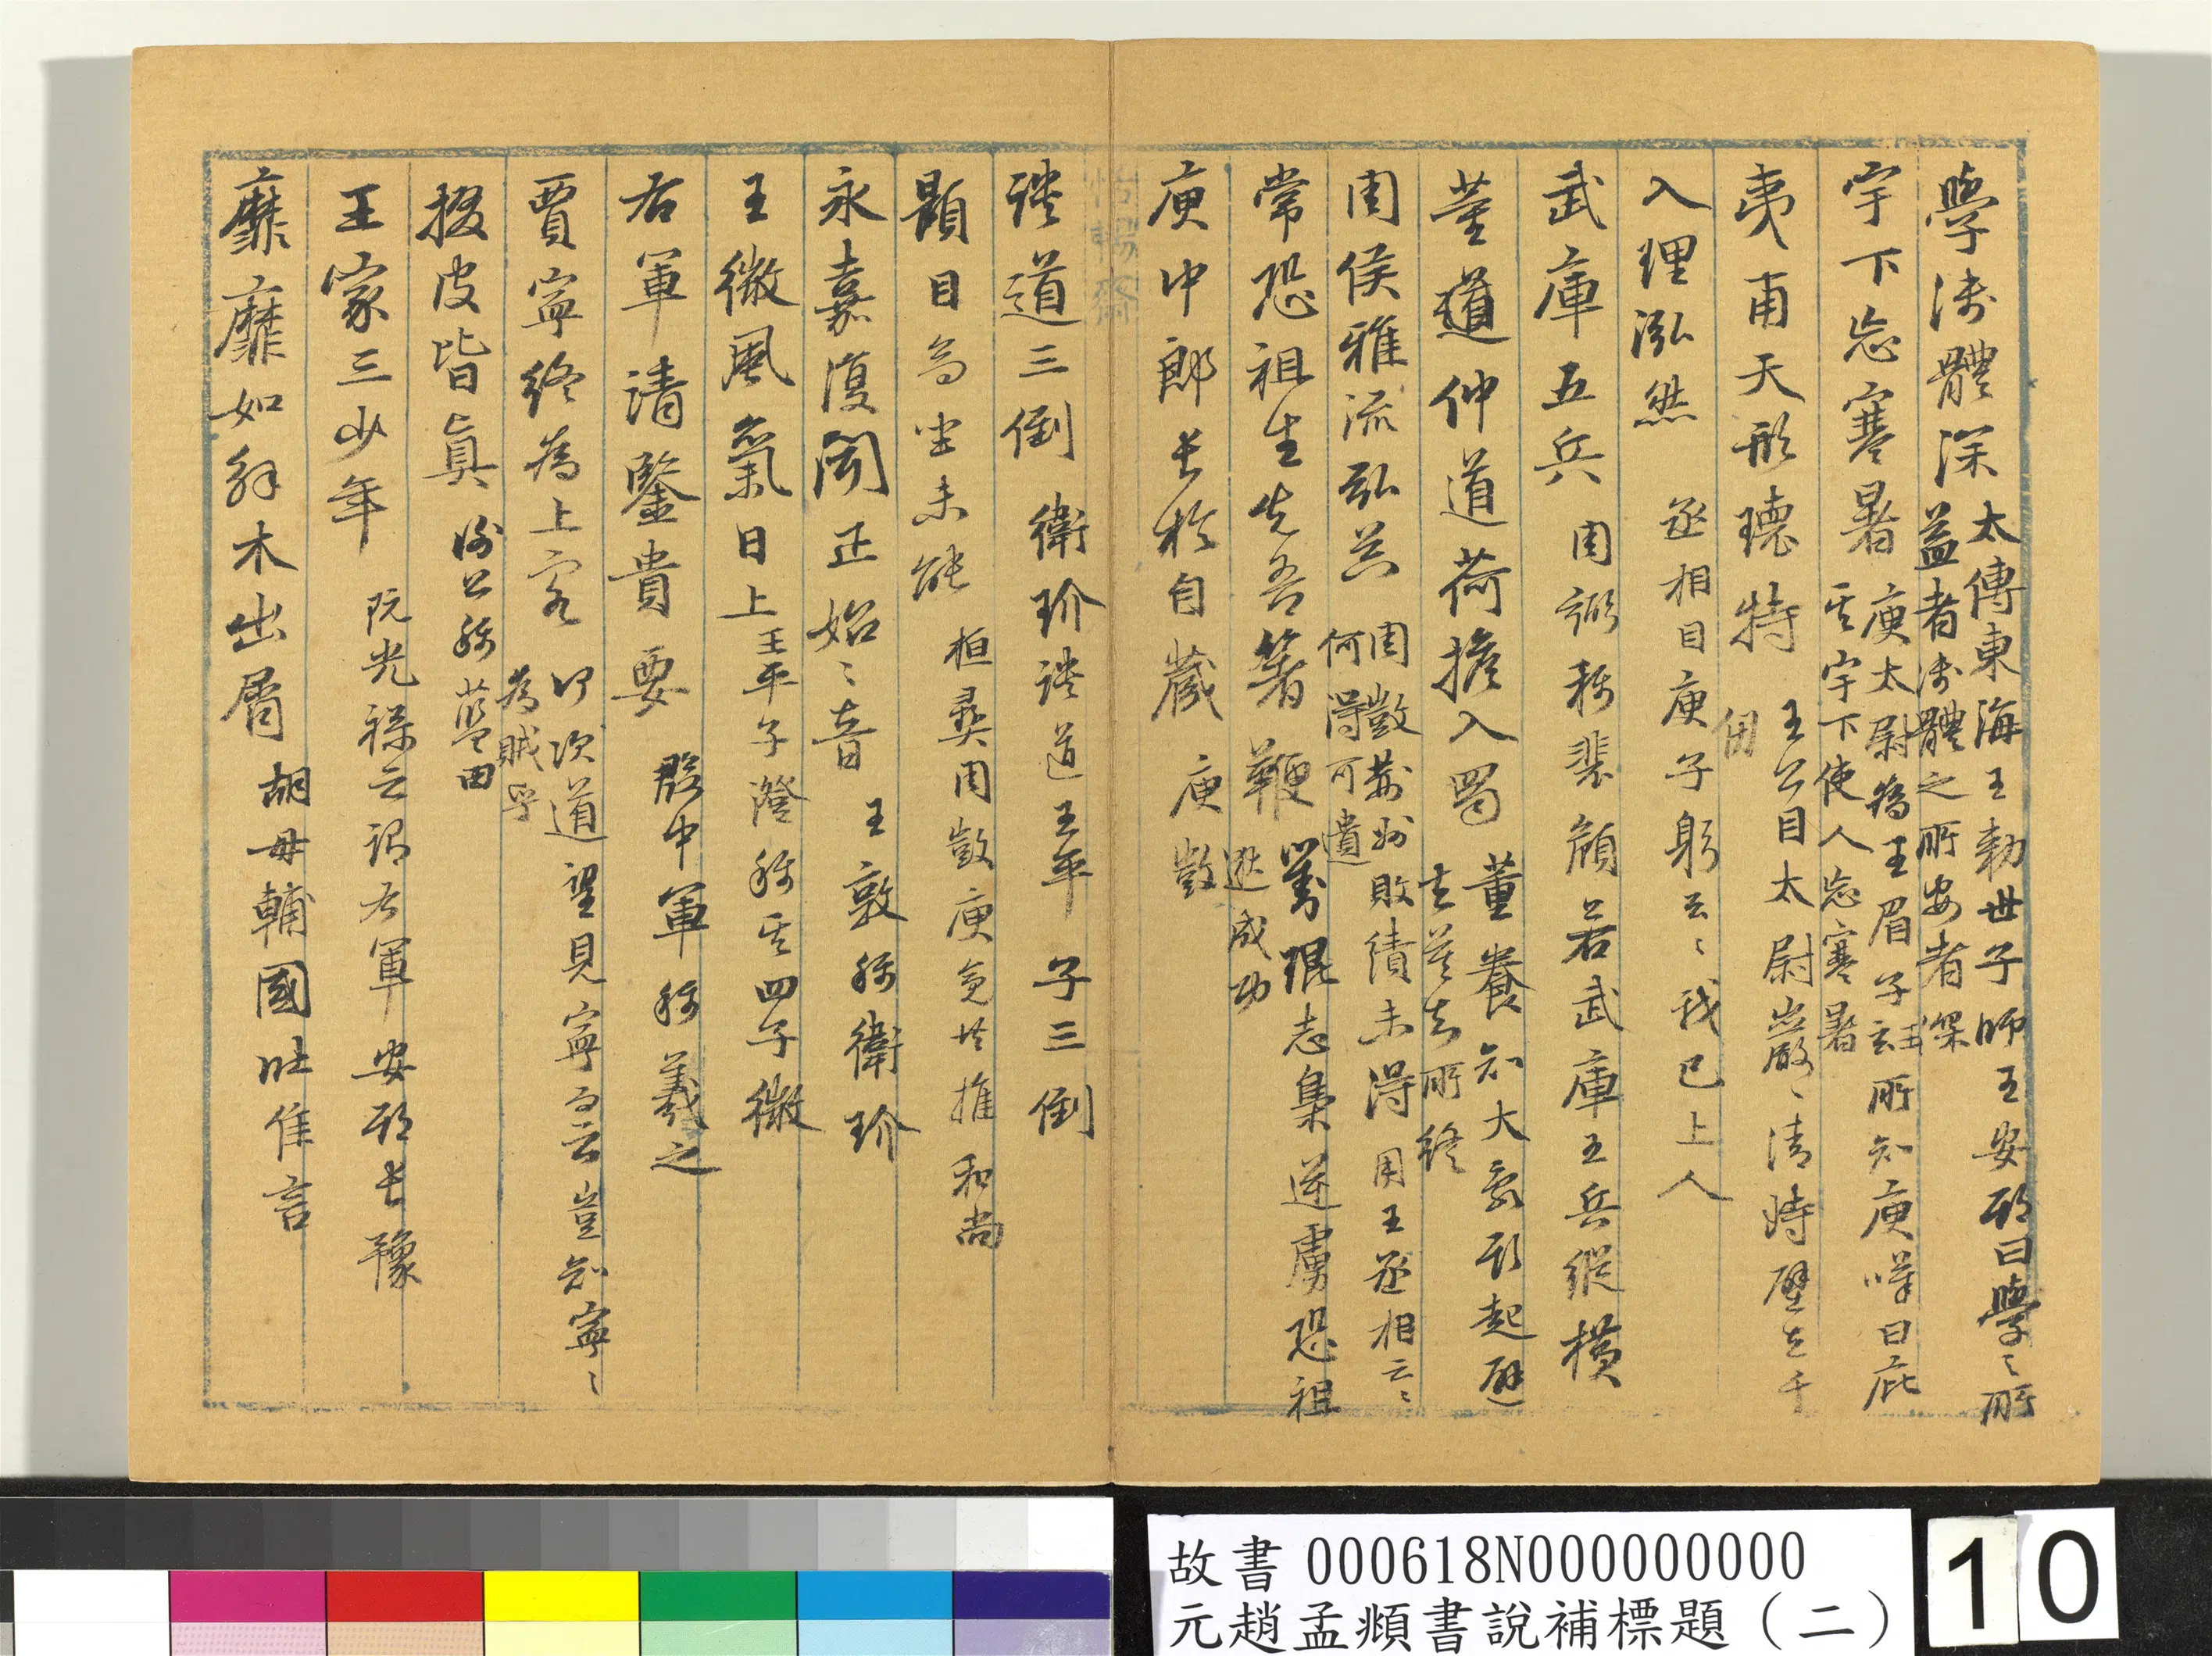 學淺體深 太傅東海王勅世子師王安期曰學之所
益者淺體之所安者深
宇下忘寒暑 庾太尉為王眉子所知庾嘆曰庇
其宇下使人忘寒暑
夷甫天形瓌特 王公目太尉巖巖清峙壁立千
仞
入理泓然 丞相目庾子躬云入理泓然我已上人
武庫五兵 周弼稱裴頠若武庫五兵縱橫
董道仲道荷擔入蜀 董養知大亂將起
莫知所終
周侯雅流弘 周 敗績未得用王丞相云
何得可遺
常恐祖生先吾著鞭 劉琨志梟逆虜恐祖
逖成功
庾中郎長於自藏 庾敳
談道三倒 衛玠談道平子三倒
顗目為 未能 桓彝周 庾 共推和尚
永嘉復聞正始之音 王敦稱衛玠
王微風氣日上 王平子澄稱其四子微
右軍清鑒貴要 殷中軍稱羲之
賈寧終為上客 何次道望見寧 云豈知寧
為賊乎
掇皮皆真 謝公稱藍田
王家三少年 阮光祿云謂右軍安期長豫
靡靡如解木出屑 胡毋輔國吐佳言
故書 000618N000000000
元趙孟頫書說補標題（二）
10